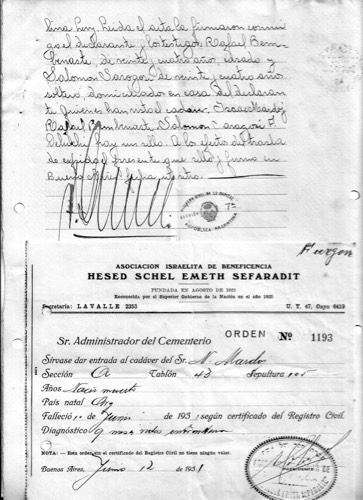 Lina Levy. Leída el acta la firmaron conmi
go el declarante y los testigos Rafael Bem
benaste de veinte y cuatro años, casado y
Salomon Varsgor de veinte y cuatro años
soltero, domiciliado en casa del declaran
te quienes han visto el cadaver. Isaac Mardoj
Rafael Salomon F.
hay un sello. A los efectos del trasla
do expido el presente que sello y firmo en
Buenos Aires fecha ut-retro.
REPUBLICA ARGENTINA
7ª
Pª urgon
ASOCIACION ISRAELITA DE BENEFICENCIA
HESED SCHEL EMETH SEFARADIT
FUNDADA EN AGOSTO DE 1921
Reconocida por el Superior Gobierno de la Nación en el año 1925
Secretaria: LAVALLE 2353 U. T. 47, Cuyo 6419
ORDEN Nº 1193
Sr. Administrador del Cementerio
Sírvase dar entrada al cadáver del Sr. N. Mardo
Sección Tablón 43 Sepultura 105
Años Nació muerto
País natal Arg
Falleció de Junio de 1931 según certificado del Registro Civil.
Diagnóstico 9 mes vida
NOTA: — Esta orden sin el certificado del Registro Civil no tiene ningún valor.
Buenos Aires, Junio 12 de 1931